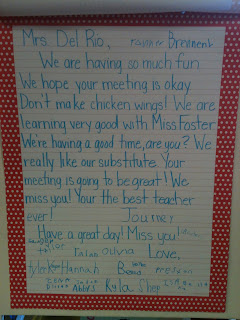 Mrs. Del Rio, Brennen
We are having so much fun
We hope your meeting is okay
Don't make chicken wings! We are
learning very good with Miss Foster
We're having a good time, are you? We
really like our substitute. Your
meeting is going to be great! We
miss you! Your the best teacher
ever! Journey
Have a great day! Miss you!
Love,
Tyler Hannah
Kyla